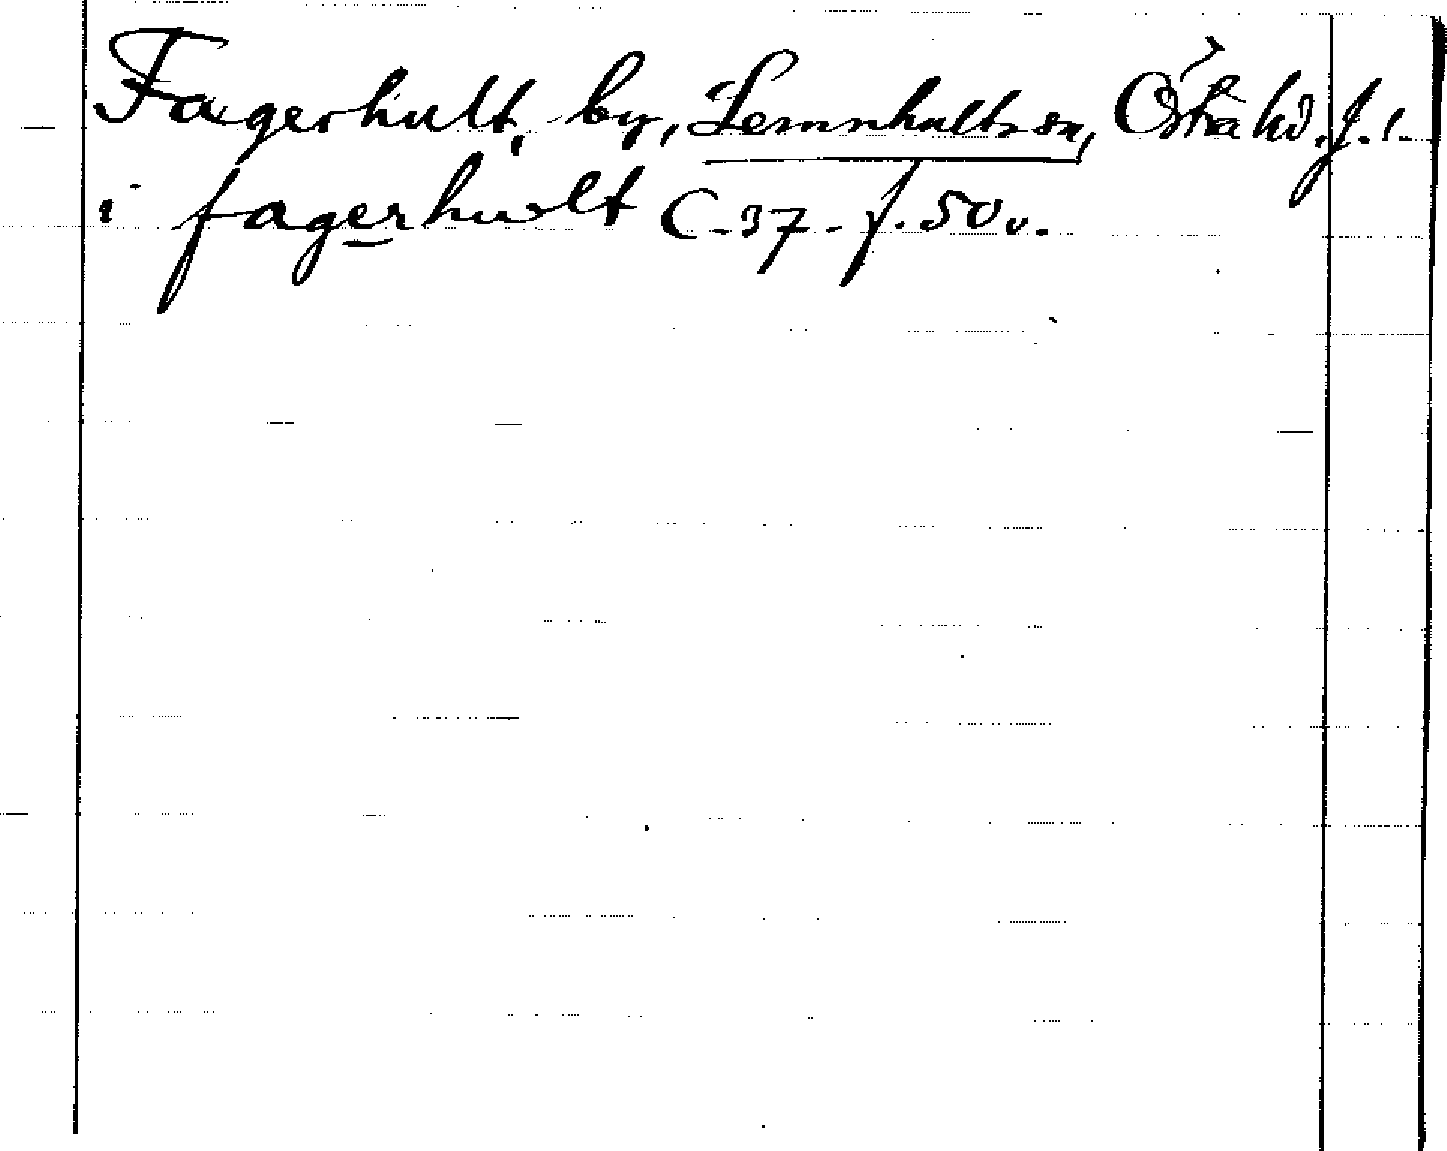 Fagerhult, by, Lemnhults sn, Östra hd. J. l.
i fagerhwlt C-37-f. 50v.